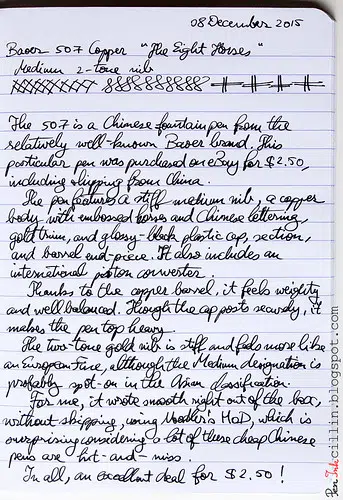 08 December 2015
Baoer 507 Copper "The Eight Horses"
Medium 2-tone nib
The 507 is a Chinese fountain pen from the
relatively well-known Baoer brand. This
particular pen was purchased on eBay for $2.50,
including shipping from China.
The pen features a stiff medium nib, a copper
body with embossed horses and Chinese lettering,
gold trim, and glossy-black plastic cap, section,
and barrel end-piece. It also includes an
international piston converter.
Thanks to the copper barrel, it feels weighty
and well balanced. Though the cap posts securely, it
makes the pen top heavy.
The two-tone gold nib is stiff and feels more like
an European Fine, although the Medium designation is
probably spot-on in the Asian classification.
For me, it wrote smooth right out of the box,
without skipping, using Noodler's HoD, which is
surprising considering a lot of these cheap Chinese
pens are hit-and-miss.
In all, an excellent deal for $2.50!
Pen Inkcillin.blogspot.com